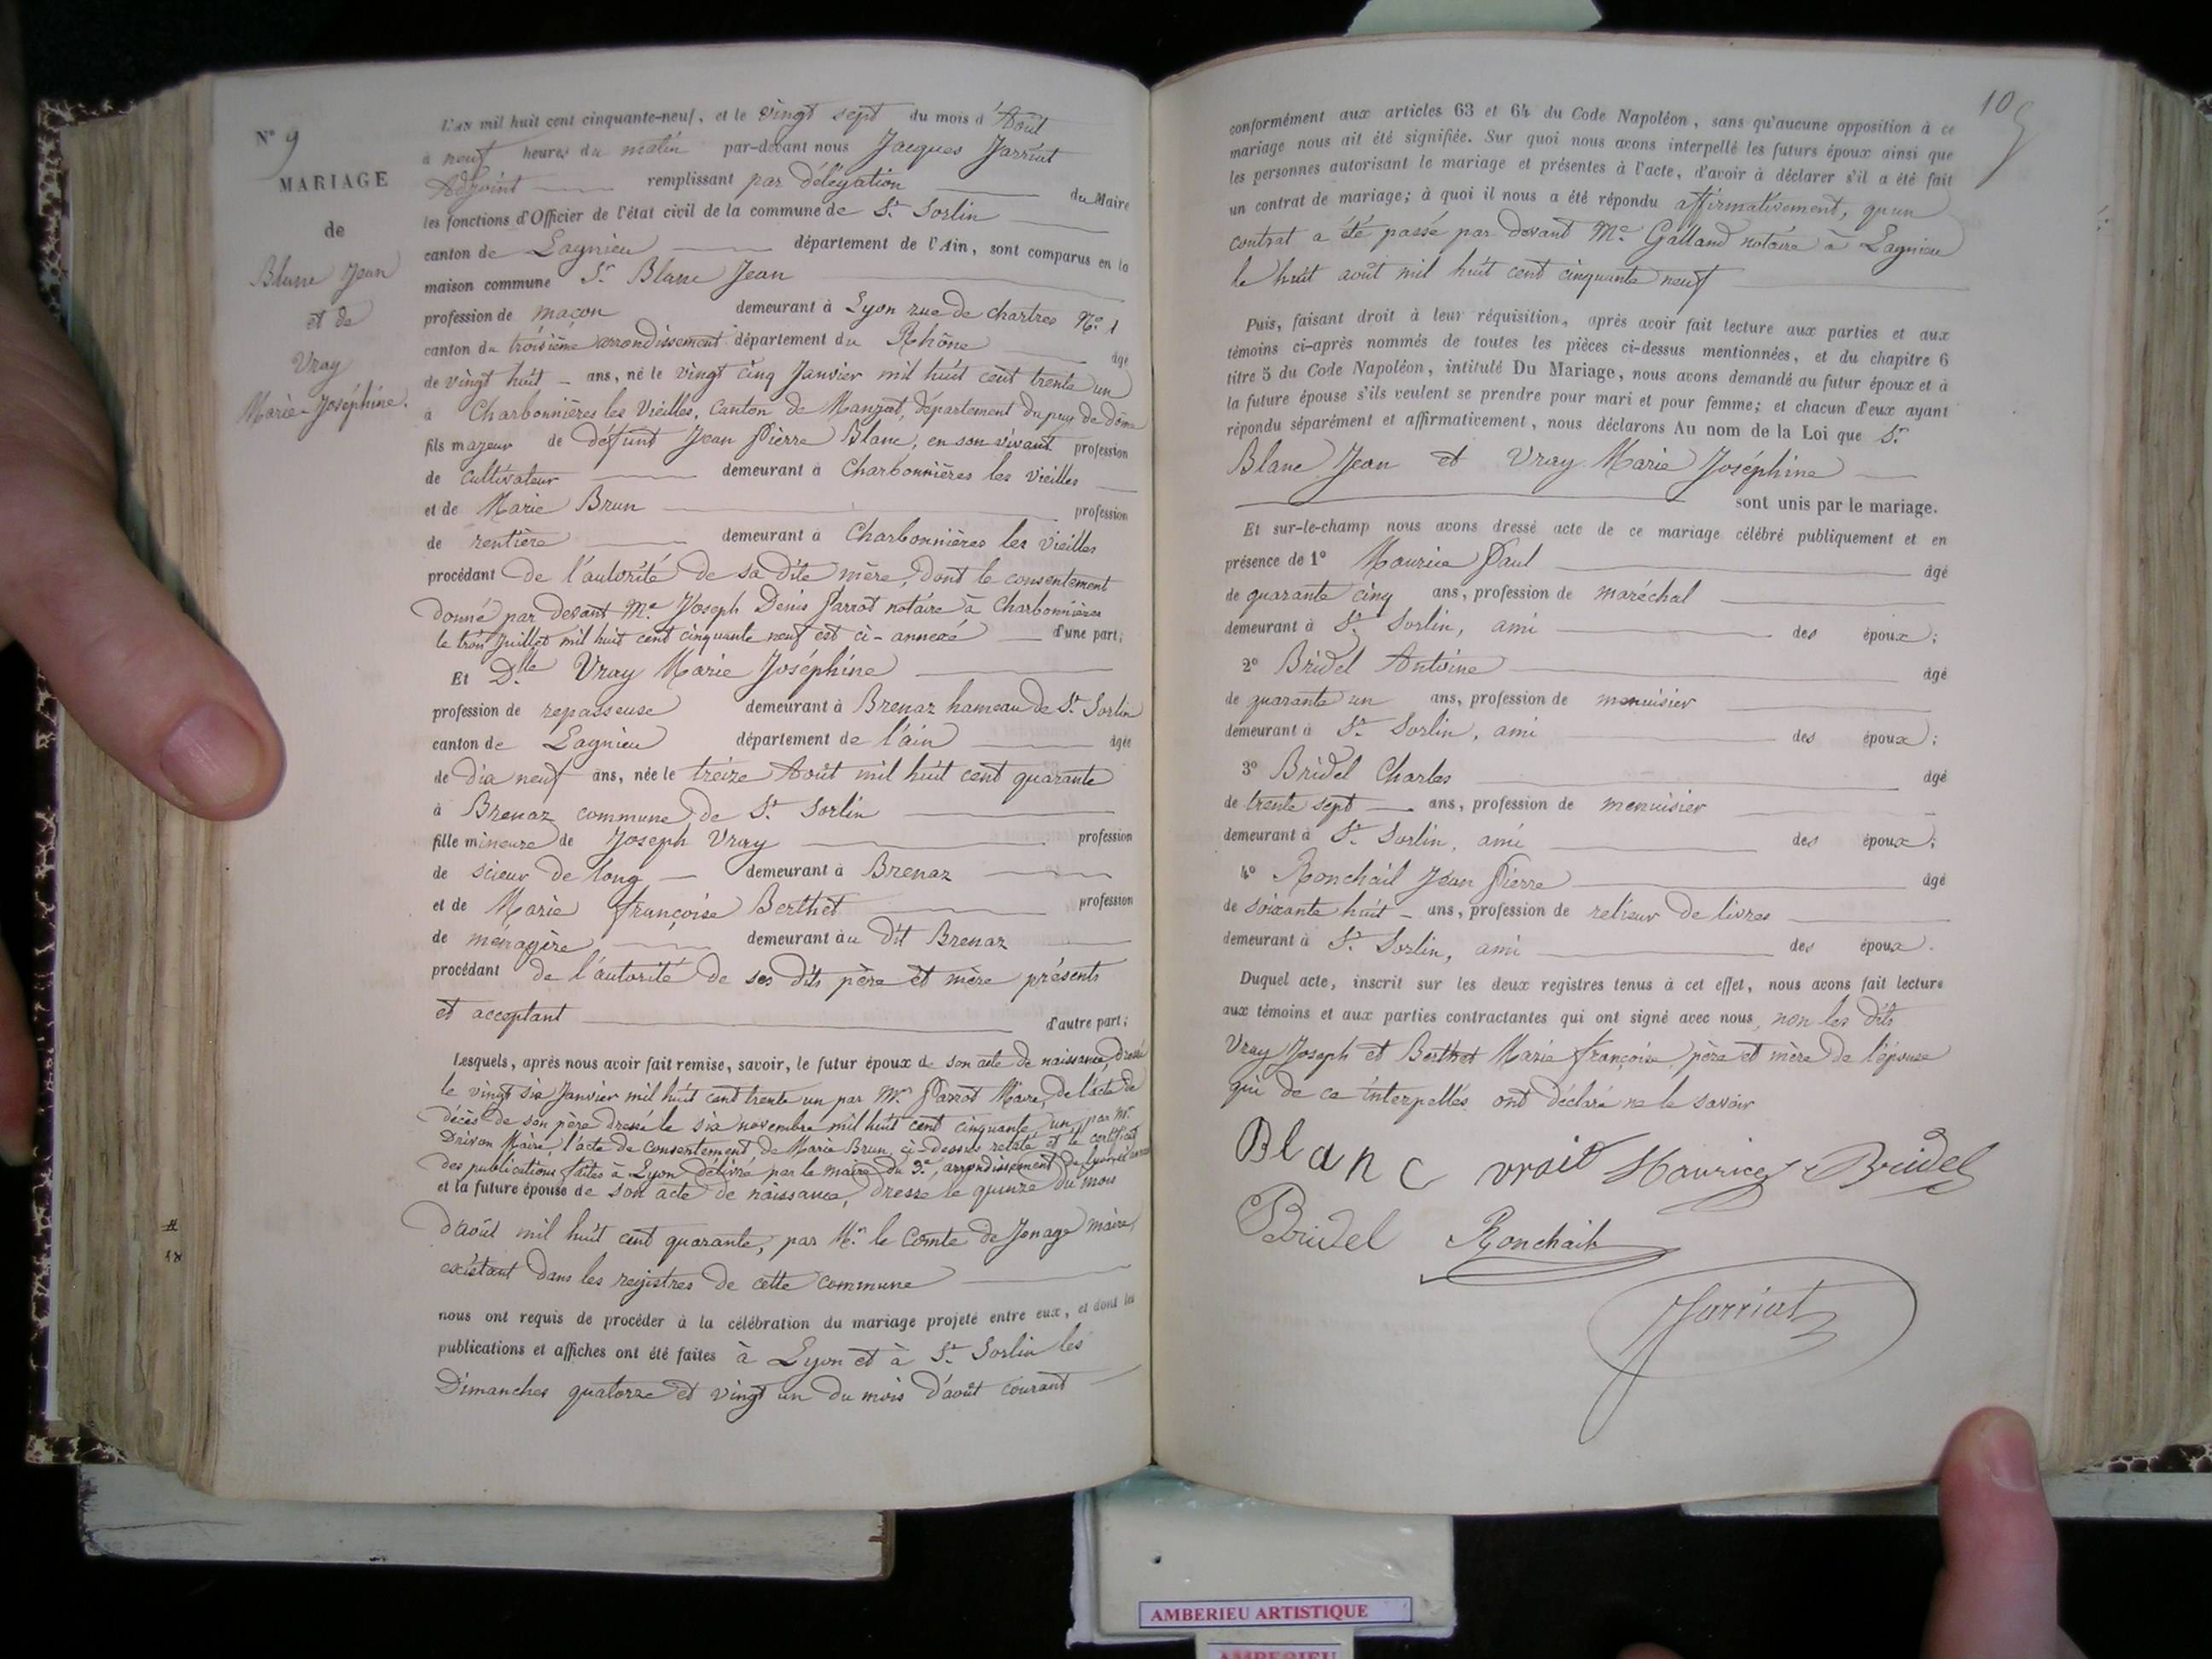 N° 9
MARIAGE
de
Blanc Jean
et de
Vray
Marie-Joséphine.
L'AN mil huit cent cinquante-neuf, et le vingt sept du mois d'Août
à neuf heures du matin par-devant nous Jacques Jarriat
Adjoint remplissant par délégation du Maire
les fonctions d'Officier de l'état civil de la commune de St Sorlin
canton de Lagnieu département de l'Ain, sont comparus en la
maison commune Sr Blanc Jean
profession de maçon demeurant à Lyon rue de chartres No. 1
canton du troisième arrondissement département du Rhône âgé
de vingt huit ans, né le vingt cinq Janvier mil huit cent trente un
à Charbonnières les Vieilles, Canton de Manzat, département du puy de dôme
fils majeur de défunt Jean Pierre Blanc, en son vivant profession
de cultivateur demeurant à Charbonnières les vieilles
et de Marie Brun profession
de rentière demeurant à Charbonnières les vieilles
procédant de l'autorité de sa dite mère, dont le consentement
donné par devant Me Joseph Denis Parrot notaire à Charbonnières
le trois Juillet mil huit cent cinquante neuf est ci-annexé d'une part;
Et Dlle Vray Marie Joséphine
profession de repasseuse demeurant à Brenaz hameau de St Sorlin
canton de Lagnieu département de l'ain âgée
de dix neuf ans, née le treize Août mil huit cent quarante
à Brenaz commune de St Sorlin
fille mineure de Joseph Vray profession
de scieur de long demeurant à Brenaz
et de Marie françoise Berthet profession
de ménagère demeurant au dit Brenaz
procédant de l'autorité de ses dits père et mère présents
et acceptant d'autre part;
Lesquels, après nous avoir fait remise, savoir, le futur époux de son acte de naissance, dressé
le vingt six Janvier mil huit cent trente un par Mr Parrot Maire, de l'acte de
décès de son père dressé le six novembre mil huit cent cinquante un par Mr
Drivon Maire, l'acte de consentement de Marie Brun, ci-dessus relaté et le certificat
des publications faites à Lyon délivré par le maire du 3e arrondissement de Lyon
et la future épouse de son acte de naissance, dressé le quinze du mois
d'août mil huit cent quarante, par Mr le Comte de Jonage maire,
existant dans les registres de cette commune
nous ont requis de procéder à la célébration du mariage projeté entre eux, et dont les
publications et affiches ont été faites à Lyon et à St Sorlin les
Dimanches quatorze et vingt un du mois d'août courant
10
conformément aux articles 63 et 64 du Code Napoléon, sans qu'aucune opposition à ce
mariage nous ait été signifiée. Sur quoi nous avons interpellé les futurs époux ainsi que
les personnes autorisant le mariage et présentes à l'acte, d'avoir à déclarer s'il a été fait
un contrat de mariage; à quoi il nous a été répondu affirmativement, qu'un
contrat a été passé par devant Me Galland notaire à Lagnieu
le huit août mil huit cent cinquante neuf
Puis, faisant droit à leur réquisition, après avoir fait lecture aux parties et aux
témoins ci-après nommés de toutes les pièces ci-dessus mentionnées, et du chapitre 6
titre 5 du Code Napoléon, intitulé Du Mariage, nous avons demandé au futur époux et à
la future épouse s'ils veulent se prendre pour mari et pour femme; et chacun d'eux ayant
répondu séparément et affirmativement, nous déclarons Au nom de la Loi que Sr
Blanc Jean et Vray Marie Joséphine
sont unis par le mariage.
Et sur-le-champ nous avons dressé acte de ce mariage célébré publiquement et en
présence de 1° Maurice Paul âgé
de quarante cinq ans, profession de maréchal
demeurant à St Sorlin, ami des époux;
2° Bridel Antoine âgé
de quarante un ans, profession de menuisier
demeurant à St Sorlin, ami des époux;
3° Bridel Charles âgé
de trente sept ans, profession de menuisier
demeurant à St Sorlin, ami des époux;
4° Ronchail Jean Pierre âgé
de soixante huit ans, profession de relieur de livres
demeurant à St Sorlin, ami des époux.
Duquel acte, inscrit sur les deux registres tenus à cet effet, nous avons fait lecture
aux témoins et aux parties contractantes qui ont signé avec nous, non les dits
Vray Joseph et Berthet Marie françoise, père et mère de l'épouse
qui de ce interpellés ont déclaré ne le savoir
Blanc vrait Maurice Bridel
Bridel Ronchail
Jarriat
AMBERIEU ARTISTIQUE
AMBERIEU